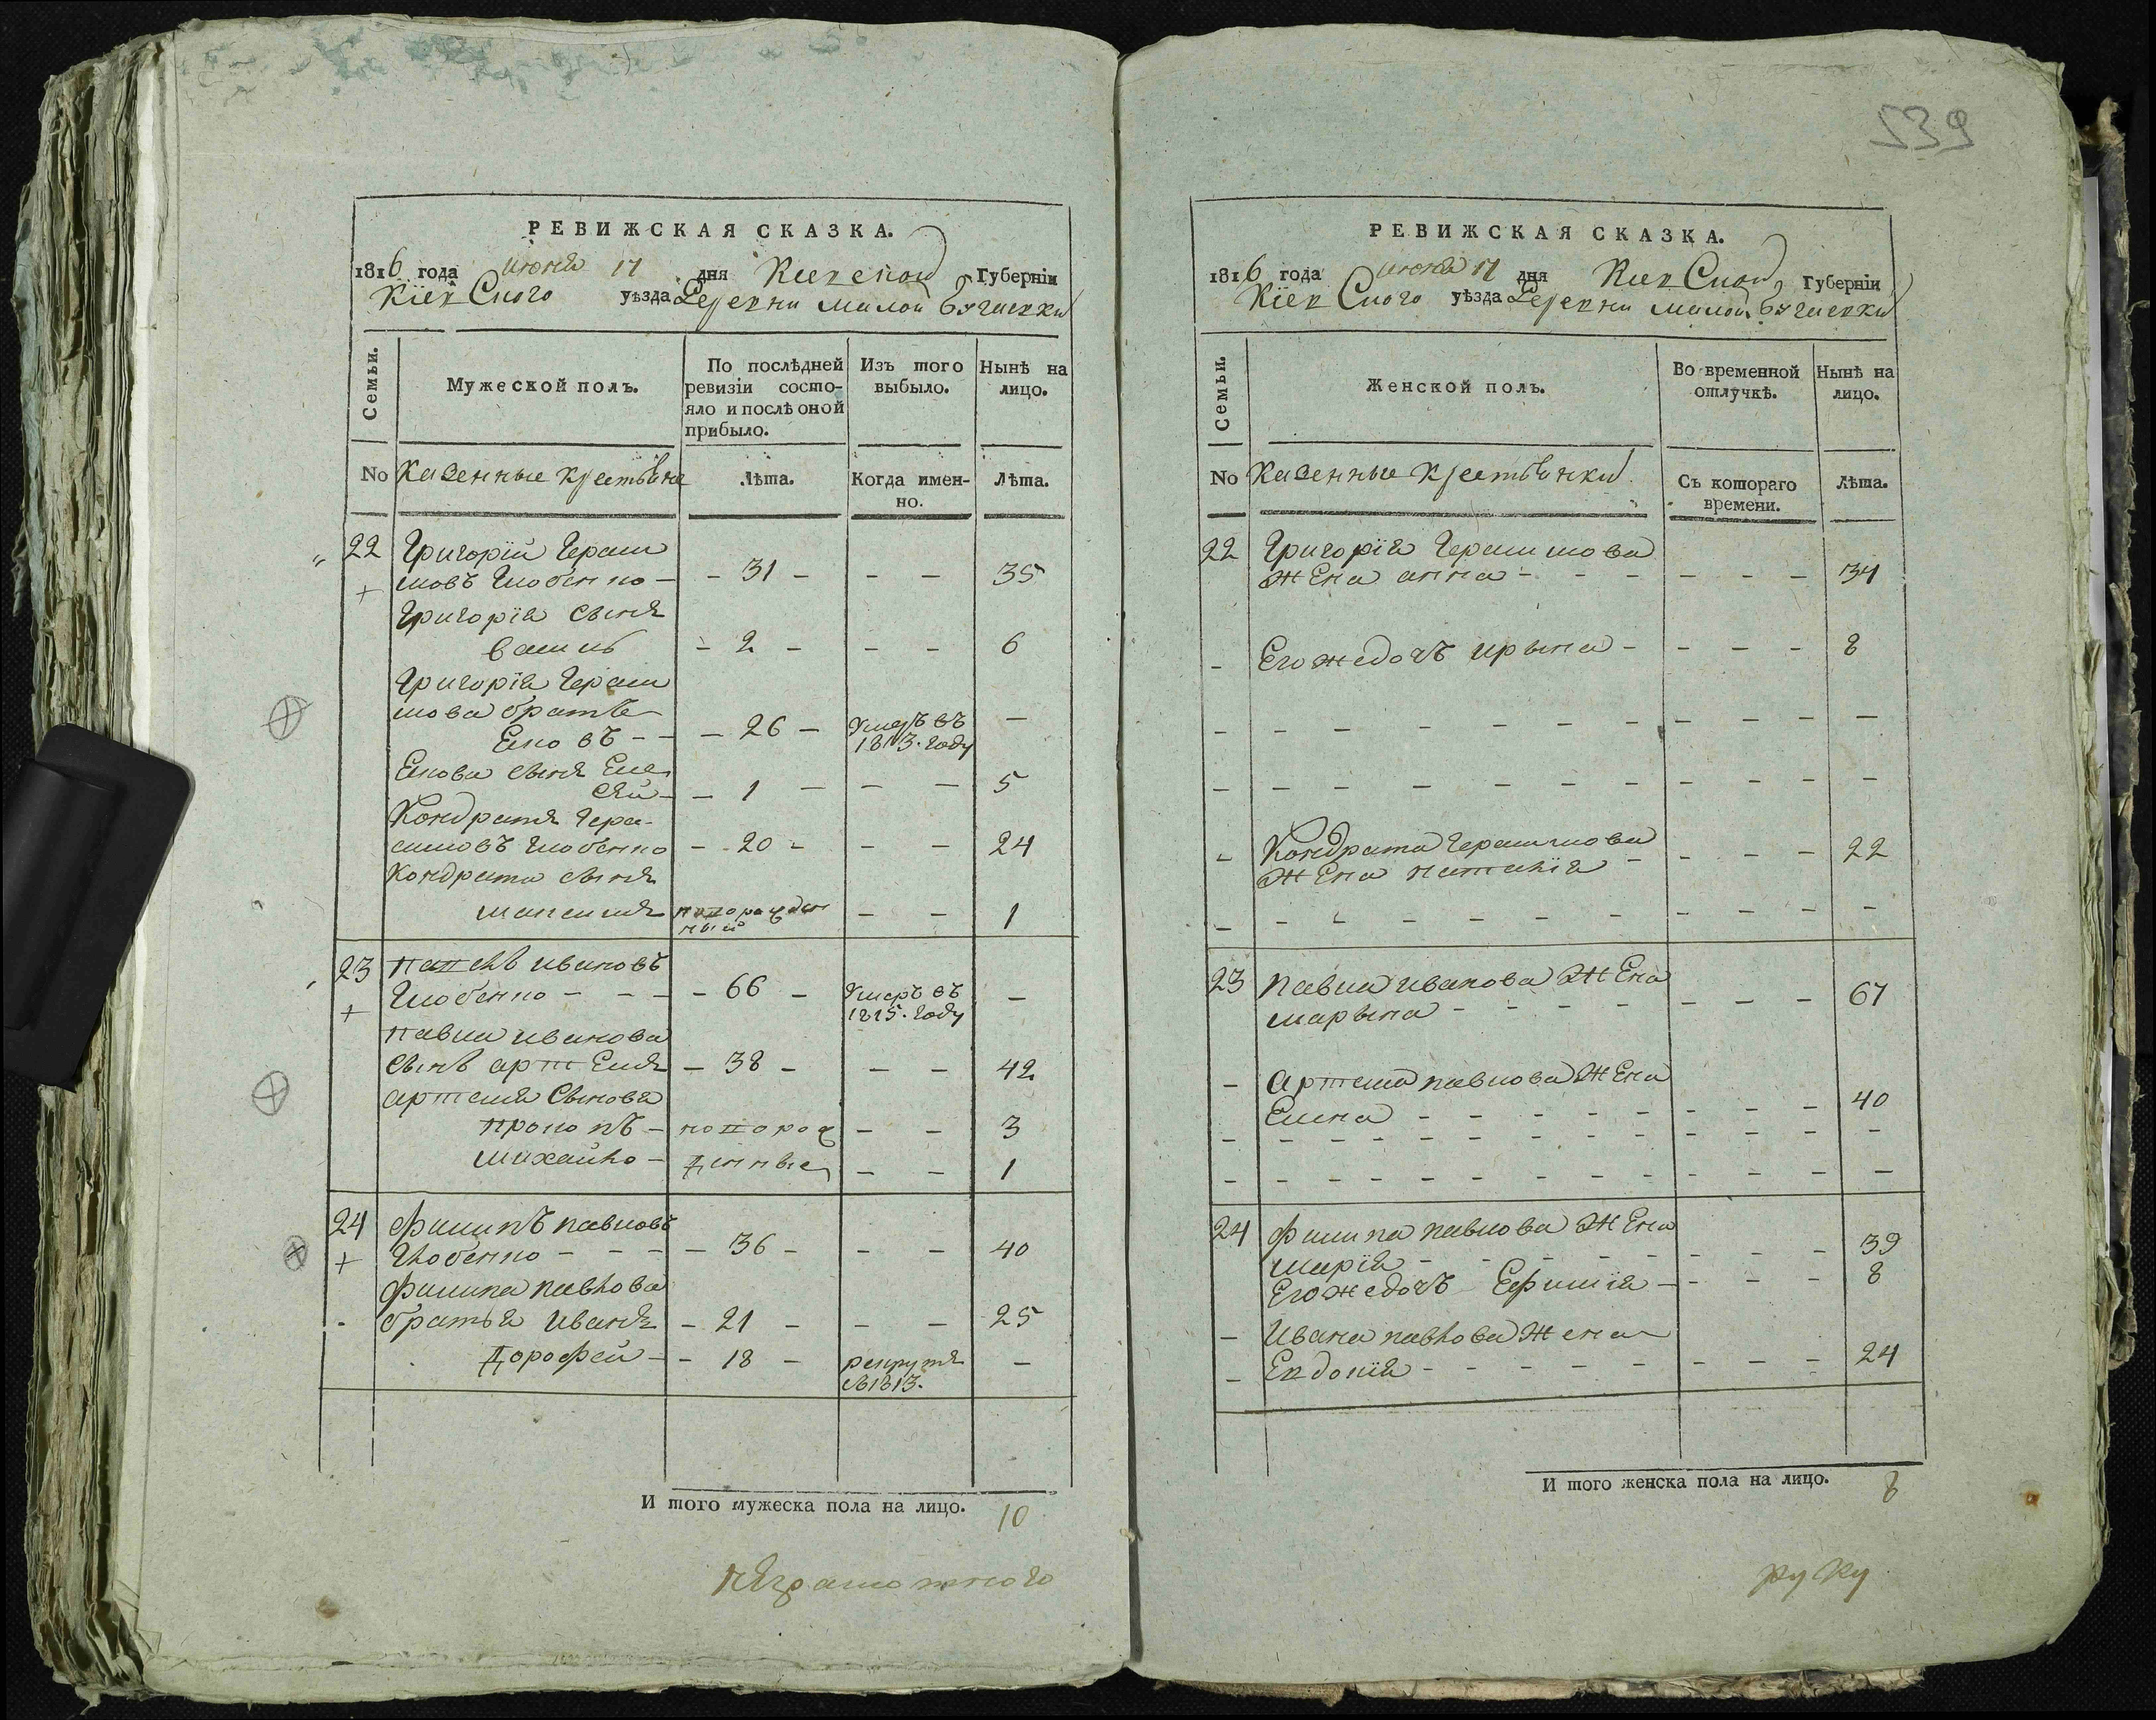 539
РЕВИЖСКАЯ СКАЗКА.
1816 года июня 17 дня Киевской Губерніи
Кіевского уѣзда Деревни малой Бугаевки
Семьи.
Мужеской полъ.
По послѣдней ревизіи состо-
яло и послѣ оной
прибыло.
Изъ того
выбыло.
Нынѣ на
лицо.
No Казенные крестьяне
Лѣта.
Когда имен-
но.
Лѣта.
22 Григорій Гераси
мовъ - 31 - - - 35
Григорія сынъ
василь - 2 - - - 6
Григорія Гераси
мова братъ
- 26 - умеръ въ
1813. году -
сынъ Еле
сѣй - 1 - - - 5
Кондратъ Гера-
симовъ - 20 - - - 24
Кондрата сынъ
максимъ новорожден
ный - - 1
23 павелъ ивановъ
- 66 - умеръ въ
1815. году -
павла иванова
сынъ артемъ - 38 - - - 42
артема сынова
прокопъ - новорож - - 3
михайло - денные - - 1
24 филипъ павловъ
- 36 - - - 40
филипа павлова
братья иванъ - 21 - - - 25
дорофей - - 18 - рекрутъ
в1813. -
И того мужеска пола на лицо. 10
неграмотного
РЕВИЖСКАЯ СКАЗКА.
1816 года июня 17 дня Киевской Губерніи
Кіевского уѣзда Деревни малой Бугаевки
Семьи.
Женской полъ.
Во временной
отлучкѣ.
Нынѣ на
лицо.
No Казенные крестьянки
Съ котораго
времени.
Лѣта.
22 Григорія Герасимова
жена анна - - - - - - 34
- Егожедочъ ирына - - - - 8
- Кондрата Герасимова
жена наталія - - - - 22
23 павла иванова жена
марына - - - - - - 67
- артема павлова жена
Елена - - - - - - - - 40
24 филипа павлова жена
марія - - - - - - - - 39
Егожедочъ Ефимія - - - - 8
- Ивана павлова жена
- Евдокія - - - - - - - - - 24
И того женска пола на лицо. 8
руку